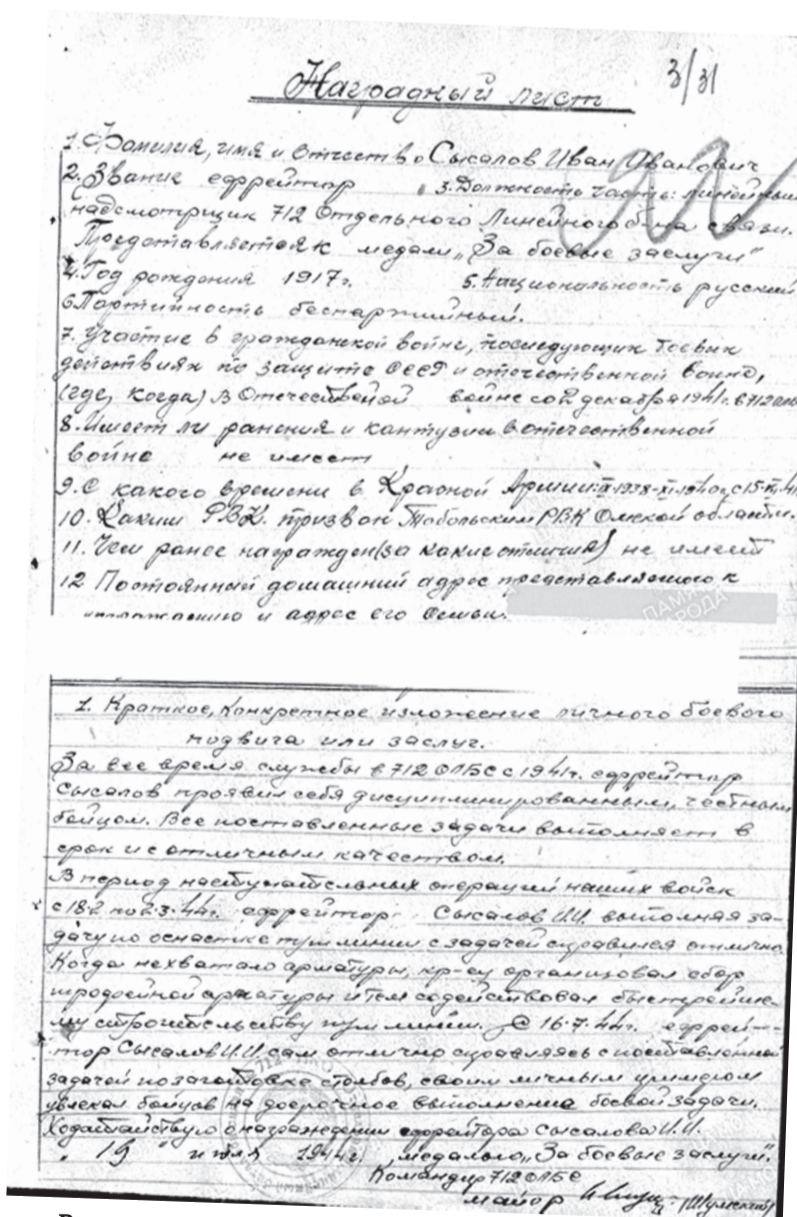 3/31
Наградный лист
1. Фамилия, имя и Отчество Сысалов Иван Иванович
2. Звание ефрейтор 3. Должность часть: линейный
надсмотрщик 712 Отдельного Линейного б-на связи.
Представляется к медали „За боевые заслуги"
4. Год рождения 1917г. 5. Национальность русский
6. Партийность беспартийный.
7. Участие в гражданской войне, последующих боевых
действиях по защите СССР и отечественной войне,
(где, когда) В Отечественой войне со 2 декабря 1941г. в 712 олбс
8. Имеет ли ранения и кантузии в отечественной
войне не имеет
9. С какого времени в Красной Армии:
10. Каким РВК. призван Тобольским РВК Омской области.
11. Чем ранее награжден (за какие отличия) не имеет
12 Постоянный домашний адрес представляемого к
и адрес его семьи.
ПАМЯТЬ
НАРОДА
1. Краткое, конкретное изложение личного боевого
подвига или заслуг.
За все время службы в 712 ОЛБС с 1941г. ефрейтор
Сысалов проявил себя дисциплинированным, честным
бойцом. Все поставленные задачи выполняет в
срок и с отличным качеством.
В период наступательных операций наших войск
с 18.2 по 2.3.44г. ефрейтор Сысалов И.И. выполняя за-
дачу по оснастке пут линии с задачей справился отлично
Когда нехватало арматуры, кр-ец организовал сбор
трофейной арматуры и тем содействовал быстрейше-
му строительству пут линии. С 16.7.44г. ефрей-
тор Сысалов И.И. сам отлично справляясь с поставленной
задачей по заготовке столбов, своим личным примером
увлекал бойцов на досрочное выполнение боевой задачи.
Ходатайствую о награждении ефрейтора Сысалова И.И.
„19" июля 1944г. медалью „За боевые заслуги".
Командир 712 ОЛБС
майор /Шумский/